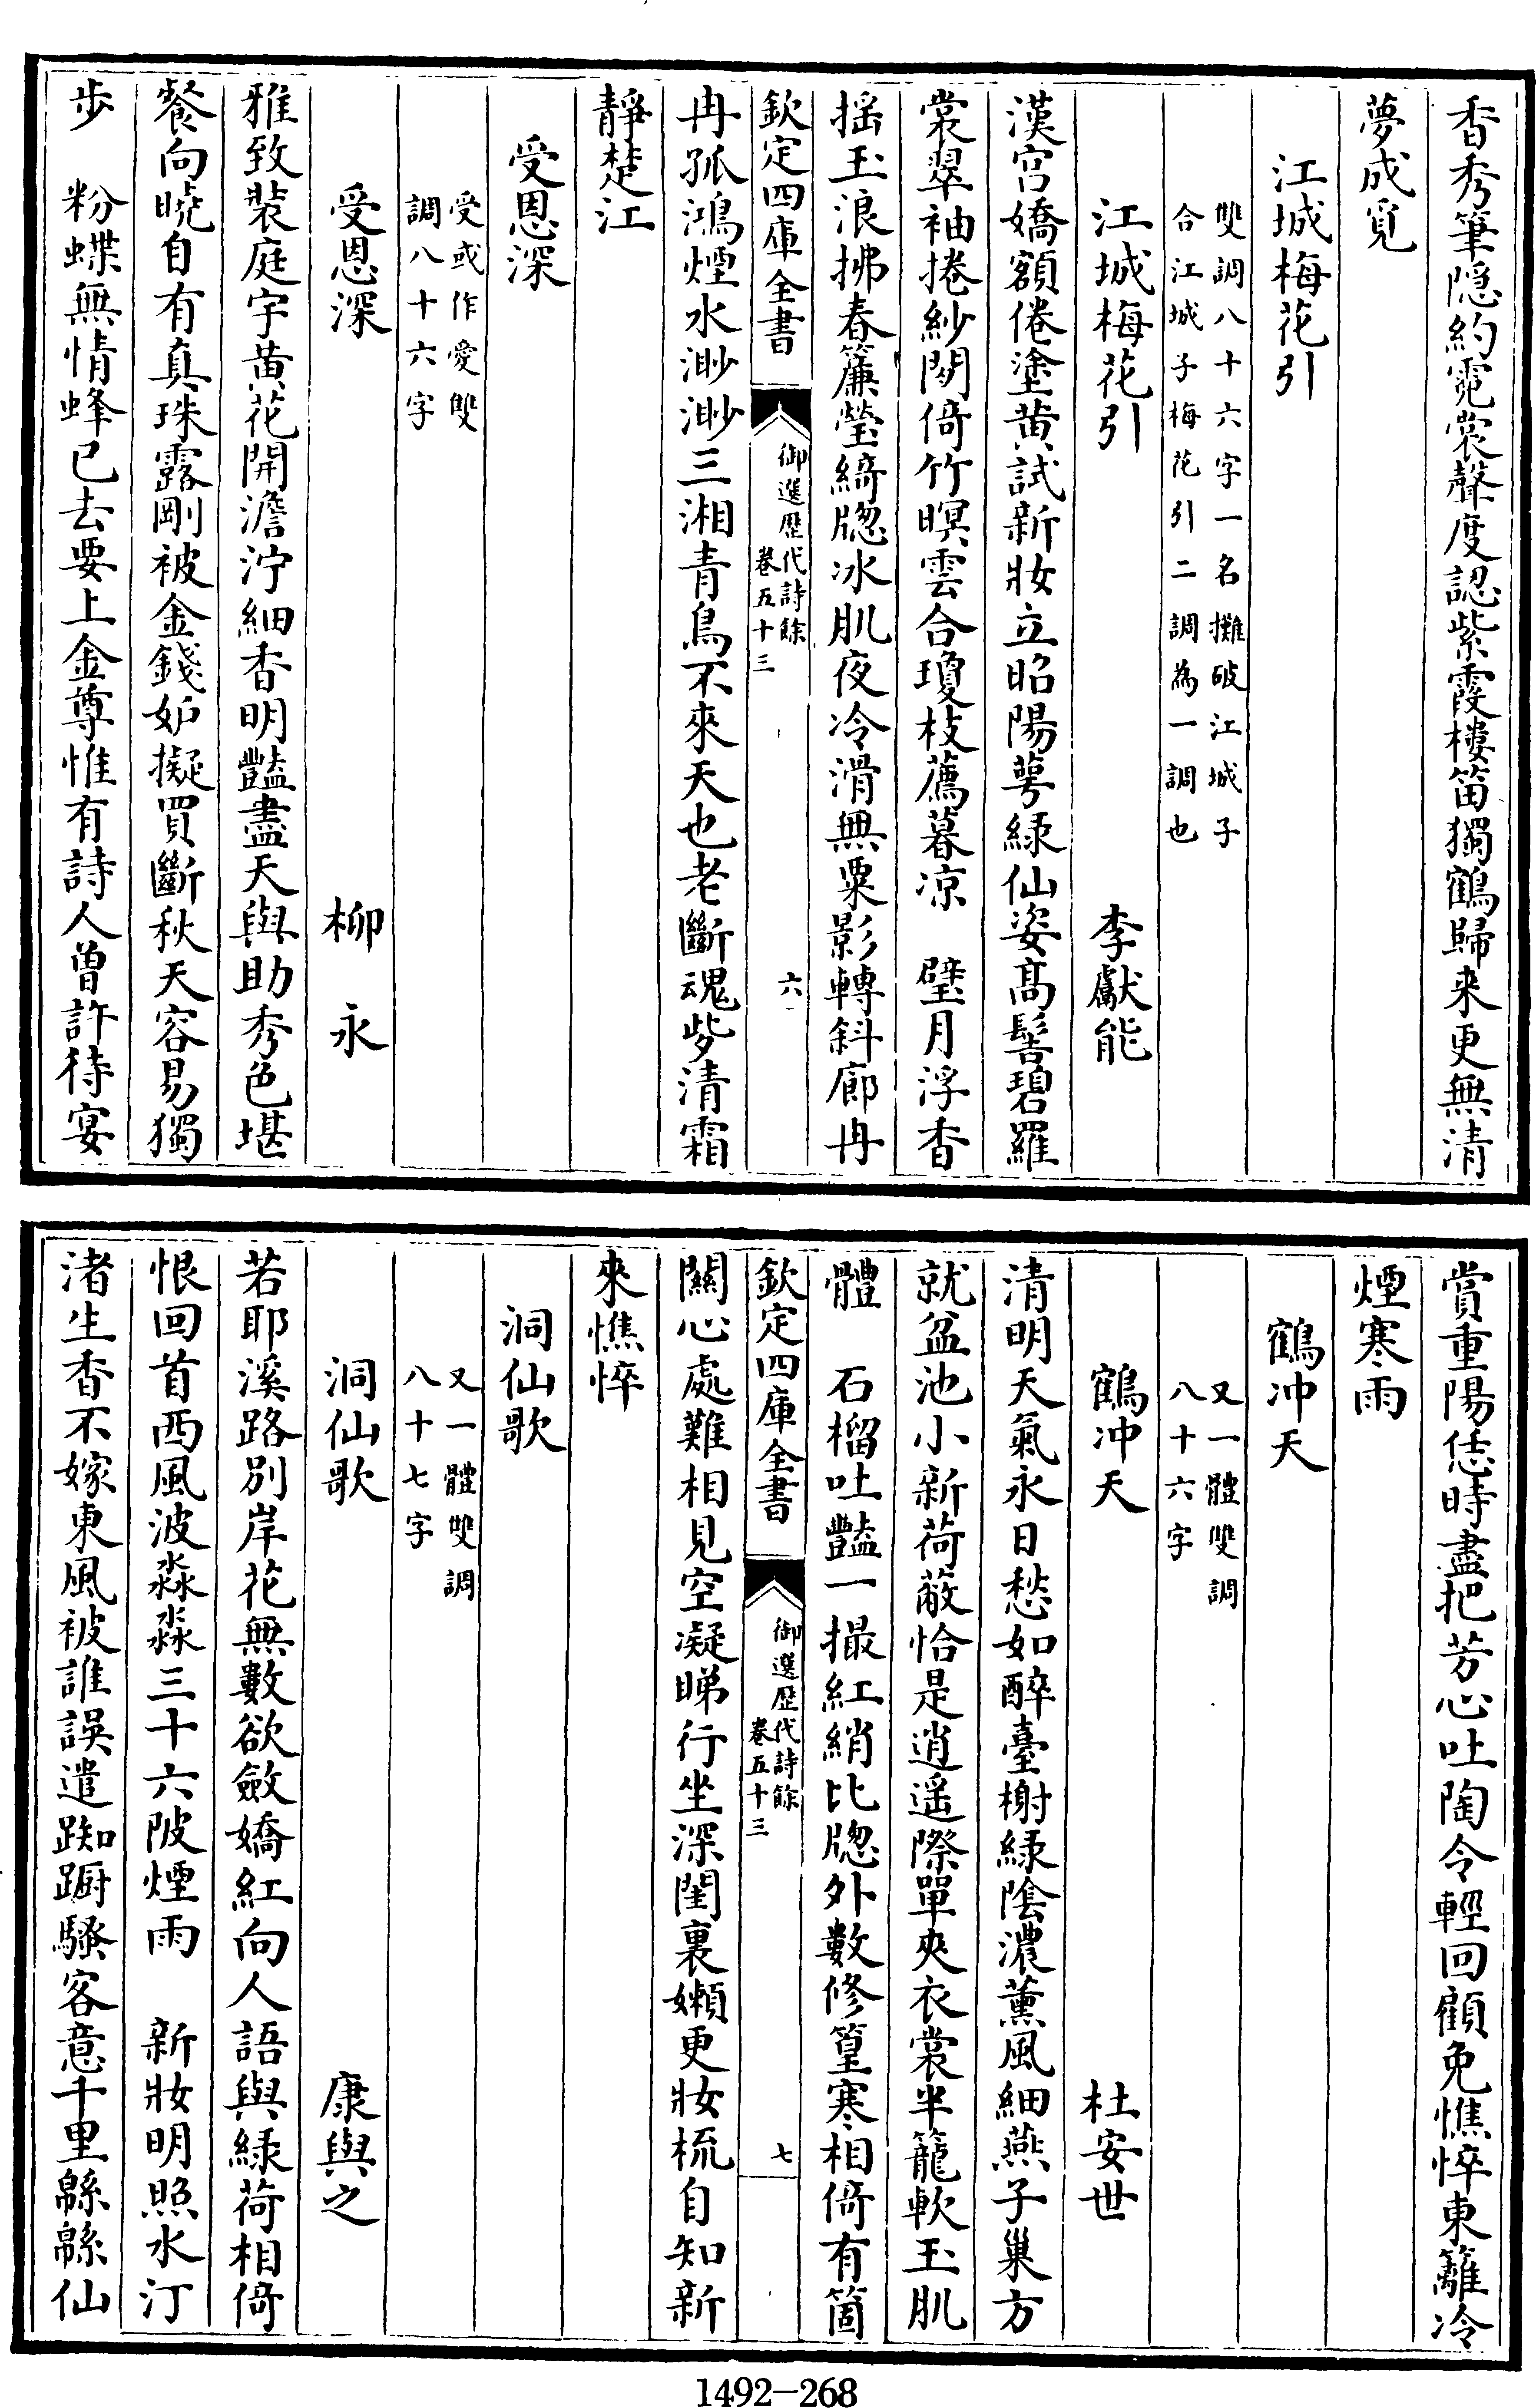 香秀筆隠約霓裳聲度認紫霞樓笛獨鶴歸来更無清
夢成覓
江城梅花引
雙調八十六字一名攤破江城子
合江城子梅花引二調為一調也
江城梅花引　李獻能
漢宮嬌額倦塗黄試新妝立昭陽萼緑仙姿髙髻碧羅
裳翠袖捲紗閒倚竹暝雲合瓊枝薦暮凉　璧月浮香
揺玉浪拂春簾瑩綺牕冰肌夜冷滑無粟影轉斜廊冉
欽定四庫全書　御選歴代詩餘　卷五十三　六
冉孤鴻煙水渺渺三湘青鳥不來天也老斷魂些清霜
靜楚江
受恩深
受或作愛雙
調八十六字
受恩深　柳永
雅致裝庭宇黄花開澹泞細香明豔盡天與助秀色堪
餐向曉自有真珠露剛被金錢妒擬買斷秋天容易獨
步　粉蝶無情蜂已去要上金尊惟有詩人曾許待宴
賞重陽恁時盡把芳心吐陶令輕回顧免憔悴東籬冷
煙寒雨
鶴冲天
又一體雙調
八十六字
鶴冲天　杜安世
清明天氣永日愁如醉臺榭緑陰濃薰風細燕子巢方
就盆池小新荷蔽恰是逍遥際單夾衣裳半籠軟玉肌
體　石榴吐豔一撮紅綃比牕外數修篁寒相倚有箇
欽定四庫全書　御選歴代詩餘　卷五十三　七
關心處難相見空凝睇行坐深閨裏嬾更妝梳自知新
來憔悴
洞仙歌
又一體雙調
八十七字
洞仙歌　康與之
若耶溪路別岸花無數欲斂嬌紅向人語與緑荷相倚
恨回首西風波淼淼三十六陂煙雨　新妝明照水汀
渚生香不嫁東風被誰誤遣踟蹰騷客意千里緜緜仙
1492—268